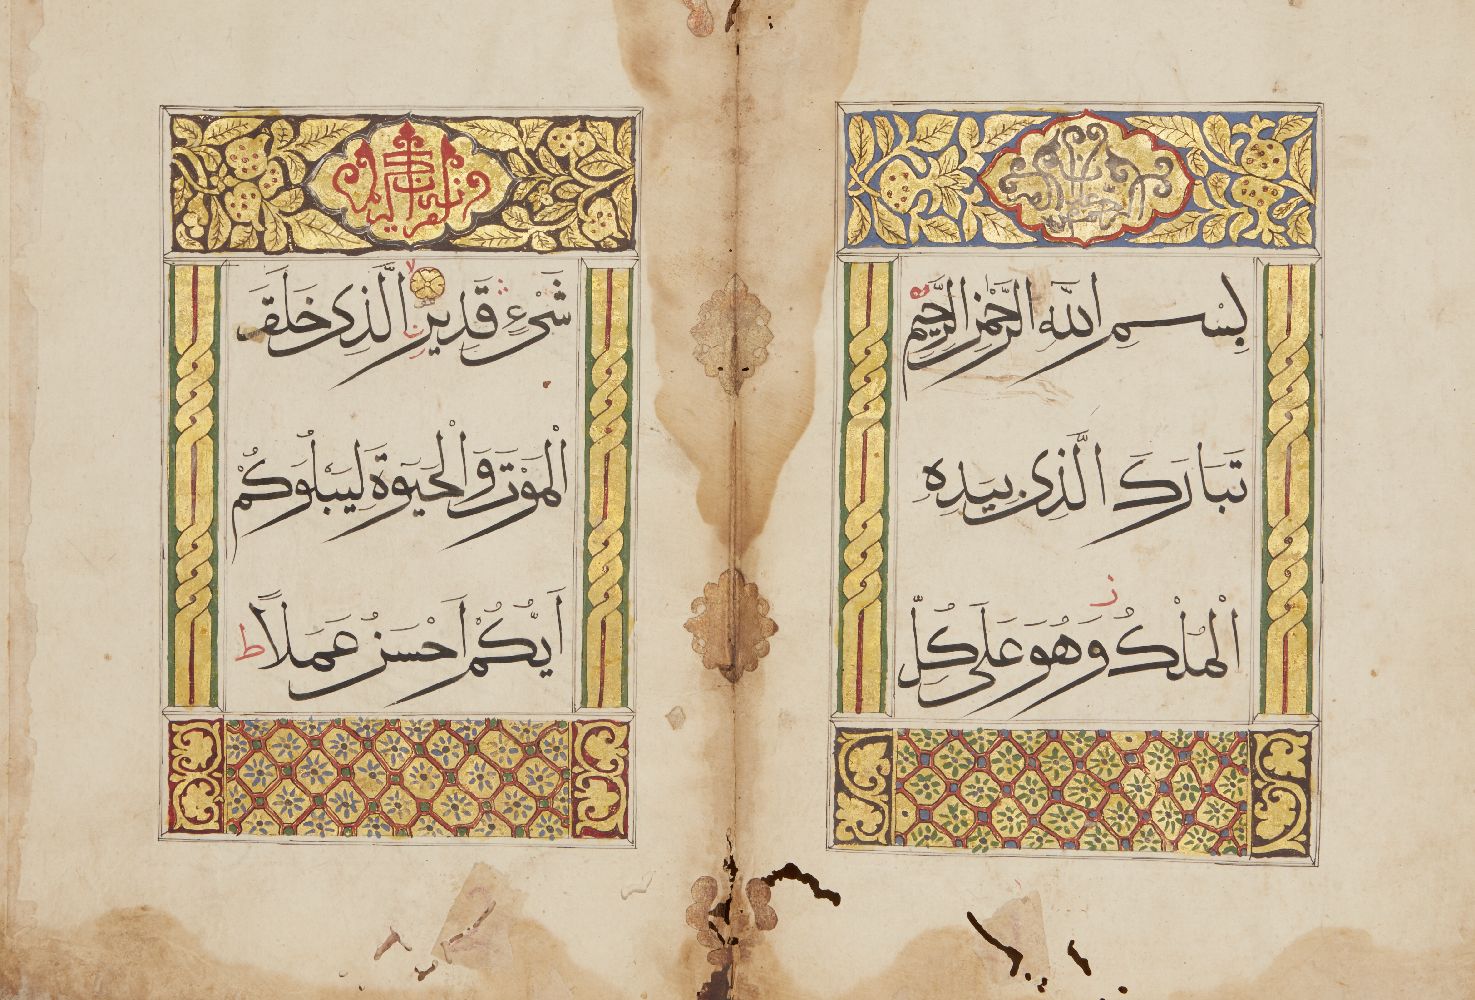 بِسْمِ اللّٰهِ الرَّحْمٰنِ الرَّحِيمِ
تَبَارَكَ الَّذِى بِيَدِهِ
الْمُلْكُ وَهُوَ عَلَى كُلِّ
شَىْءٍ قَدِيرٌ الَّذِى خَلَقَ
الْمَوْتَ وَالْحَيَوةَ لِيَبْلُوَكُمْ
اَيُّكُمْ اَحْسَنُ عَمَلاً ط